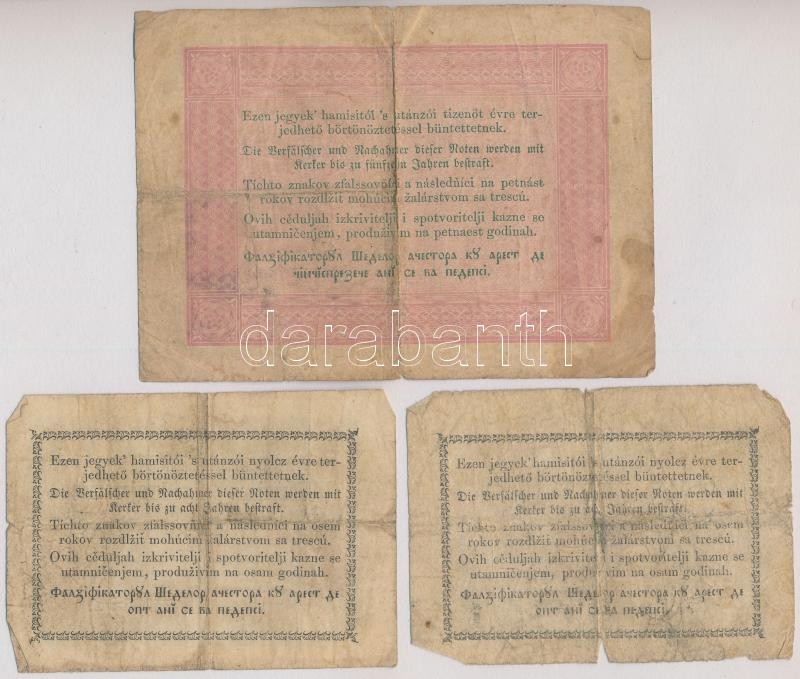 Ezen jegyek' hamisitói 's utánzói tizenöt évre ter-
jedhető börtönöztetéssel büntettetnek.
Die Verfälscher und Nachahmer dieser Noten werden mit
Kerker bis zu fünfzehn Jahren bestraft.
Tíchto znakov zfalssovňíci a následňíci na petnást
rokov rozdĺžit mohúcim žalárstvom sa trescú.
Ovih céduljah izkrivitelji i spotvoritelji kazne se
utamničenjem, produživim na petnaest godinah.
Фалзіфікаторꙋл Шеделор ачестора кꙋ арест де
чінчіспрезече ані се ва педепсі.
darabanth
Ezen jegyek' hamisitói 's utánzói nyolcz évre ter-
jedhető börtönöztetéssel büntettetnek.
Die Verfälscher und Nachahmer dieser Noten werden mit
Kerker bis zu acht Jahren bestraft.
Tíchto znakov zfalssovňíci a následníci na osem
rokov rozdlžit mohúcim žalárstvom sa trescú.
Ovih céduljah izkrivitelji i spotvoritelji kazne se
utamničenjem, produživim na osam godinah.
Фалзіфікаторꙋл Шеделор ачестора кꙋ арест де
опт ані се ва педепсі.
Ezen jegyek' hamisitói 's utánzói nyolcz évre ter-
jedhető börtönöztetéssel büntettetnek.
Die Verfälscher und Nachahmer dieser Noten werden mit
Kerker bis zu acht Jahren bestraft.
Tíchto znakov zfalssovňíci a následníci na osem
rokov rozdlžit mohúcim žalárstvom sa trescú.
Ovih céduljah izkrivitelji i spotvoritelji kazne se
utamničenjem, produživim na osam godinah.
Фалзіфікаторꙋл Шеделор ачестора кꙋ арест де
опт ані се ва педепсі.